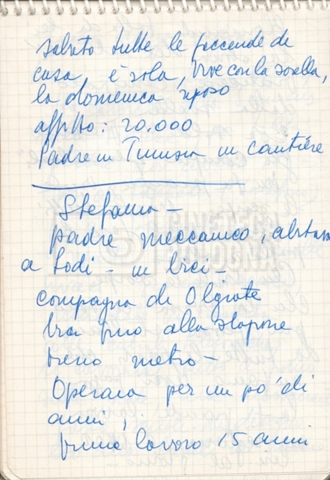 sabato tutte le faccende di
casa è sola, vive con la sorella,
la domenica riposo
affitto: 20.000
Padre in Tunisia in cantiere
Stefania -
padre meccanico, abitano
a Lodi - in bici -
compagna di Olgiate
fino alla stazione
treno metro -
Operaia per un po' di
anni,
primo lavoro 15 anni